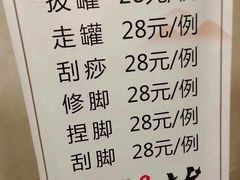 拔罐 28元/例
走罐 28元/例
刮痧 28元/例
修脚 28元/例
捏脚 28元/例
刮脚 28元/例